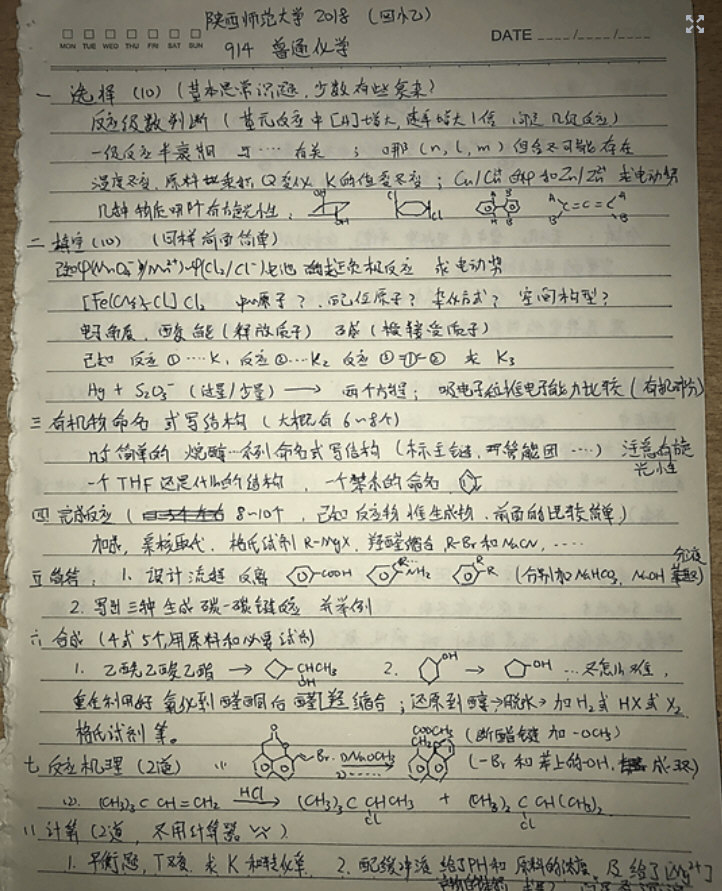 陕西师范大学 2018 (回忆)
MON TUE WED THU FRI SAT SUN
DATE ____/____/____
914 普通化学
一 选择 (10) (基本是常识题, 少数有些复杂)
反应级数判断 (基元反应中[A]增大, 速率增大1倍 问是几级反应)
一级反应半衰期 与… 有关 ; 哪 (n, l, m) 组合不可能存在
温度不变, 原料 Q变化 K的值变不变 ; Cu/Cu 和 Zn/Zn 求电动势
几种物质哪个有旋光性 :
二 填空 (10) (同样前面简单)
已知 φ(MnO₄⁻/Mn²⁺) φ(Cl₂/Cl⁻) 正负极反应 求电动势
Cl] Cl₂ 中心原子? 配位原子? 杂化方式? 空间构型?
电子角度, 酸 (释放质子) 碱 (接受质子)
已知 反应①…K₁ 反应②…K₂ 反应③=①-② 求 K₃
Hg + S₂O₃⁻ (过量/少量) → 两个方程; 吸电子和推电子能力比较 (有机部分)
三 有机物命名 或写结构 (大概有6~8个)
简单的 烷醇…系列命名或写结构 (标主链, 官能团 ……) 注意有旋光性
一个THF 还是什么的结构 , 一个苯系的命名,
四 完成反应 ( 8~10个, 已知反应物推生成物, 前面的比较简单)
加成, 亲核取代, 格氏试剂 R-MgX, 羟醛缩合, R-Br和NaCN, ……
五 简答, 1. 设计流程 分离 COOH R… NH₂ R R (分别加 NaHCO₃, NaOH 分液 萃取)
2. 写出三种生成碳-碳键反应 并举例
六 合成 (4或5个, 用原料和必要试剂)
1. 乙酰乙酸乙酯 → CHCH₃ OH 2. OH → OH … 不怎么难,
重在利用好 氧化到醛酮后 羟醛缩合 ; 还原到醇→脱水→加H₂或HX或X₂,
格氏试剂 等。
七 反应机理 (2道) (1) O Br ①NaOCH₃ ②…… → COOCH₃ CH₂ (断酯键 加 -OCH₃)
(-Br和苯上的-OH, 成环)
(2). (CH₃)₃C CH=CH₂ HCl → (CH₃)₃C CHCH₃ Cl + (CH₃)₂ C CH(CH₃)₂ Cl
八 计算 (2道, 不用计算器)
1. 平衡题, T不变, 求K和转化率. 2. 配缓冲液 给了PH和原料的浓度, 及给了[Mg²⁺]